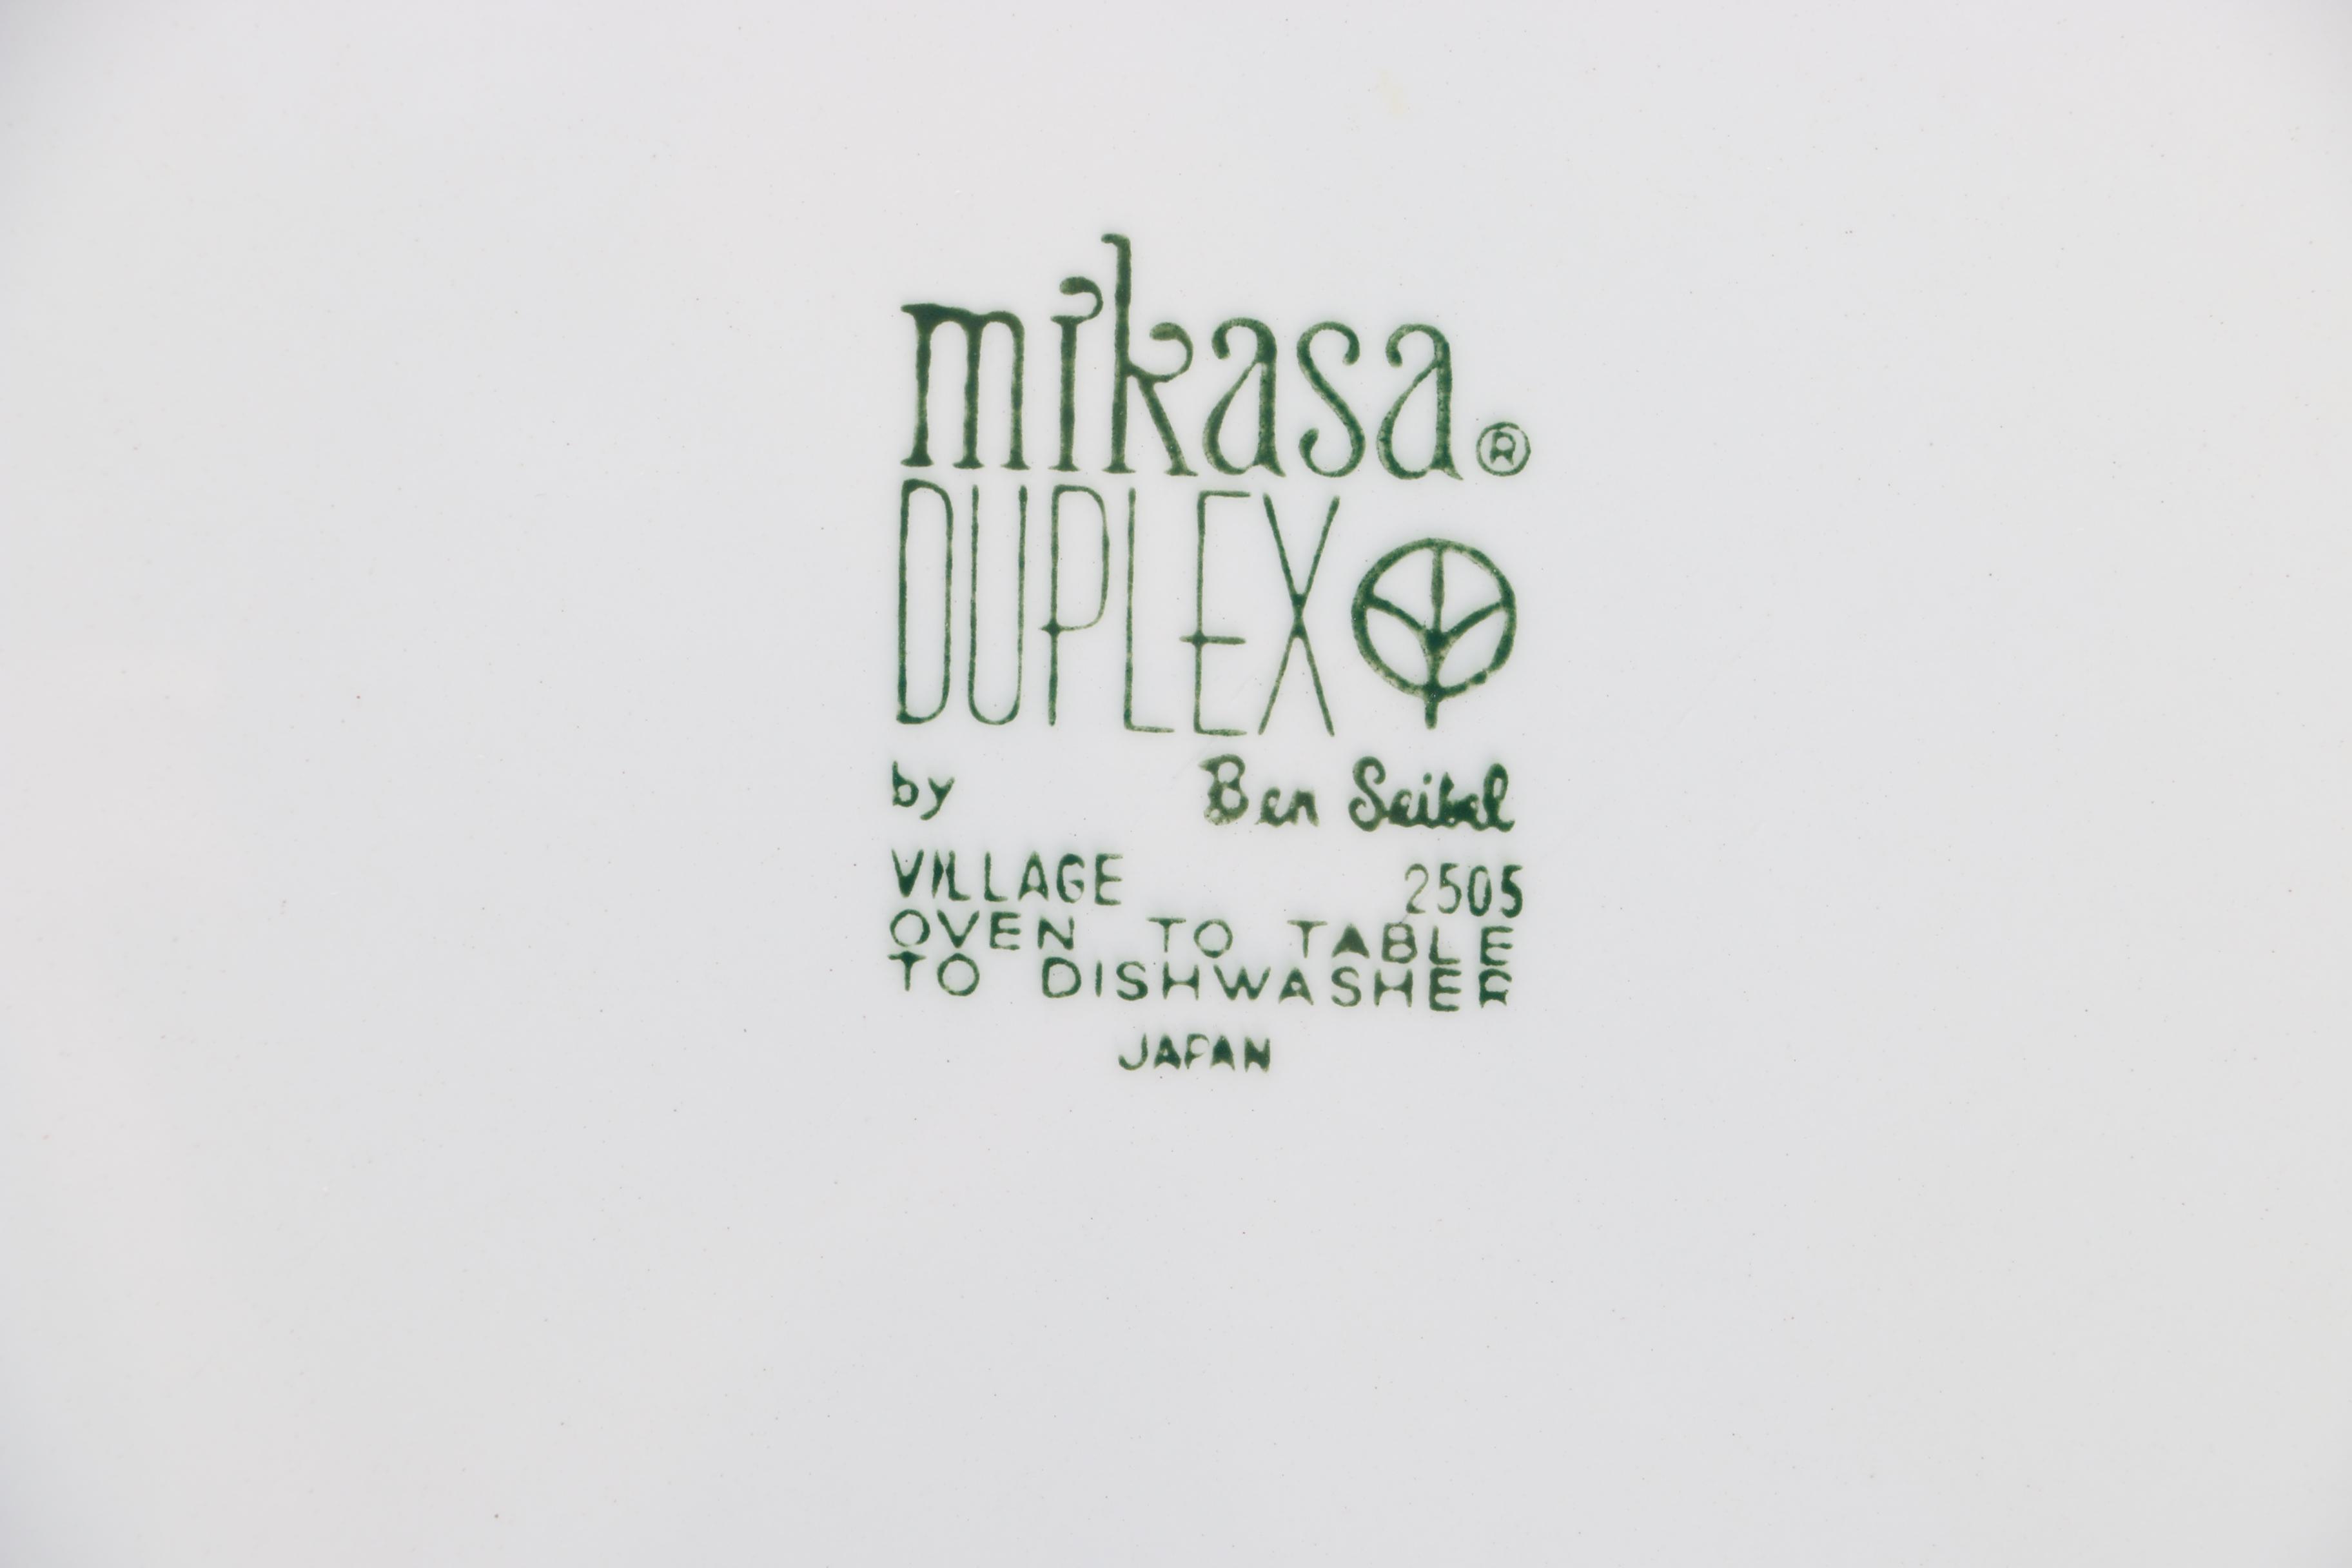 mikasa®
DUPLEX
by Ben Seibel
VILLAGE 2505
OVEN TO TABLE
TO DISHWASHER
JAPAN